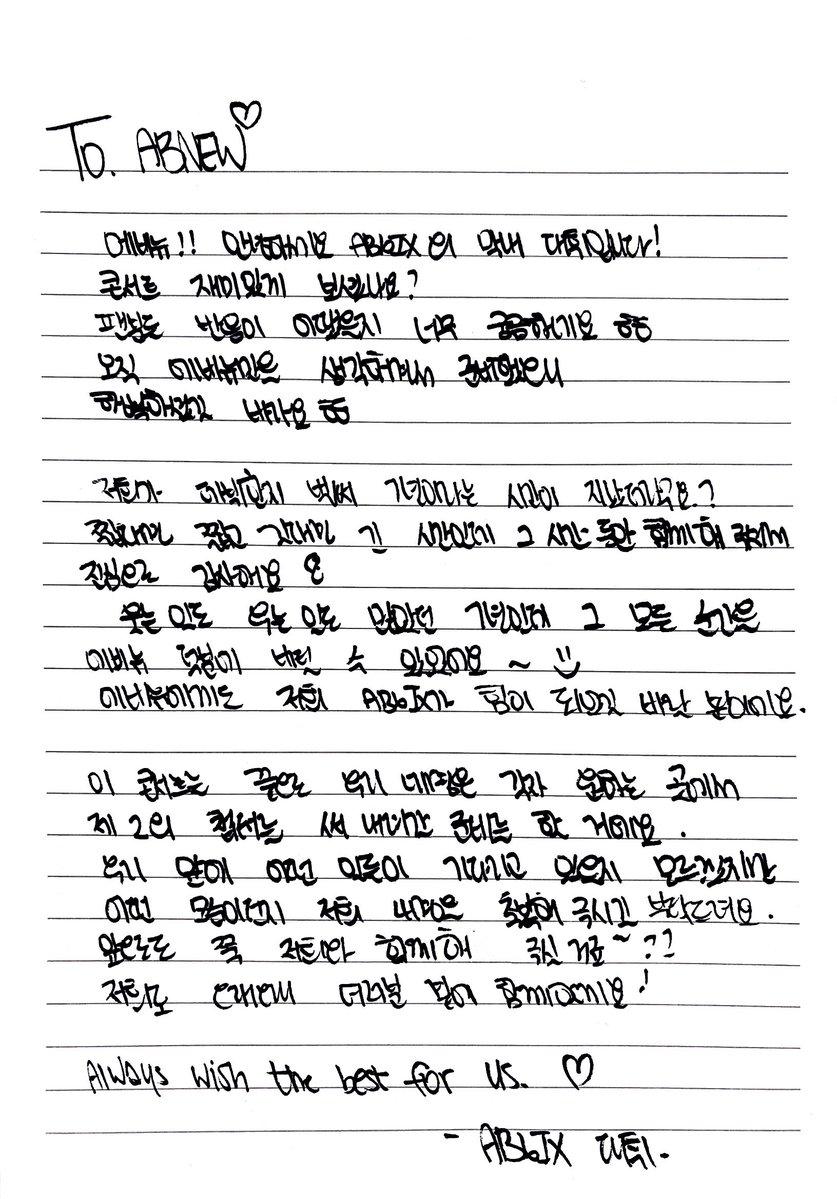 To. ABNEW♡
에비뉴!! 안녕하세요 AB6IX의 막내 대휘입니다!
콘서트 재미있게 보셨나요?
팬분들 반응이 어땠을지 너무 궁금하네요 ㅎㅎ
오직 에비뉴만을 생각하면서 준비했으니
행복하셨길 바라요 ㅎㅎ
저희가 데뷔한지 벌써 5년이라는 시간이 지났더라구요?
짧다면 짧고 길다면 긴 시간인데 그 시간 동안 함께해 주셔서
진심으로 감사해요
웃는 일도 우는 일도 많았던 5년인데 그 모든 순간을
에비뉴 덕분에 버틸 수 있었어요 ~ :)
에비뉴에게도 저희 AB6IX가 힘이 되었길 바랄 뿐이에요.
이 콘서트를 끝으로 우리 네명은 각자 원하는 곳에서
제 2의 챕터를 써 내려갈 준비를 할 거예요.
우리 앞에 어떤 일들이 기다리고 있을지 모르겠지만
어떤 모습이던지 저희 네명을 축복해 주시길 부탁드려요.
앞으로도 꼭 저희와 함께해 주실 거죠~??
저희도 언제나 여러분 곁에 함께할게요!
Always wish the best for us. ♡
- AB6IX 대휘.